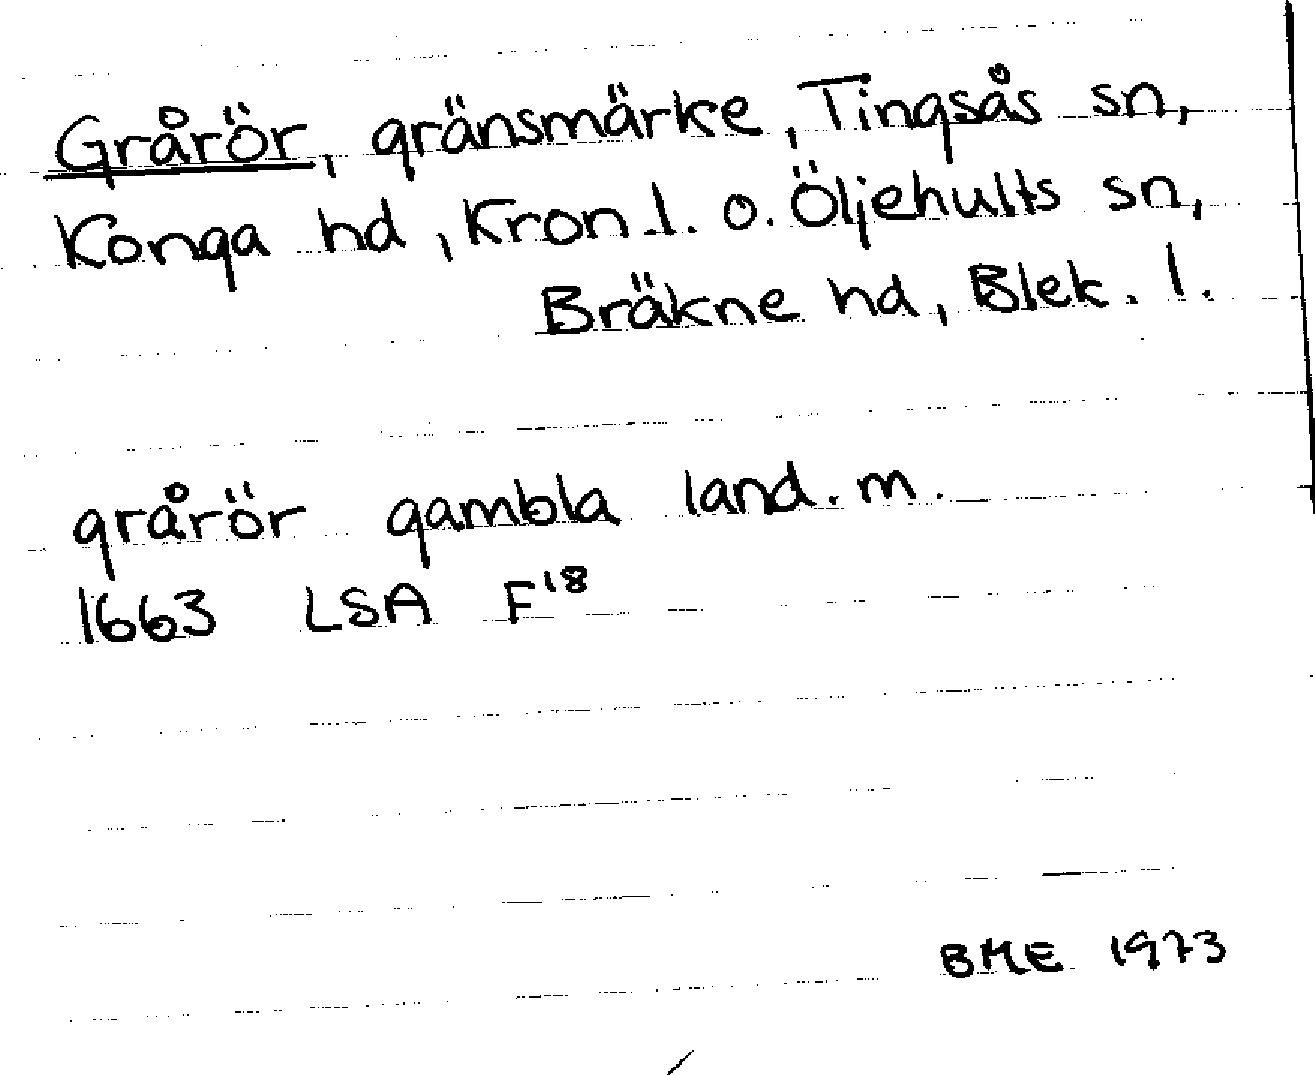 Grårör, gränsmärke, Tingsås sn,
Konga hd, Kron. l. o. Öljehults sn,
Bräkne hd, Blek. l.
grårör gambla land. m.
1663 LSA F18
BME 1973